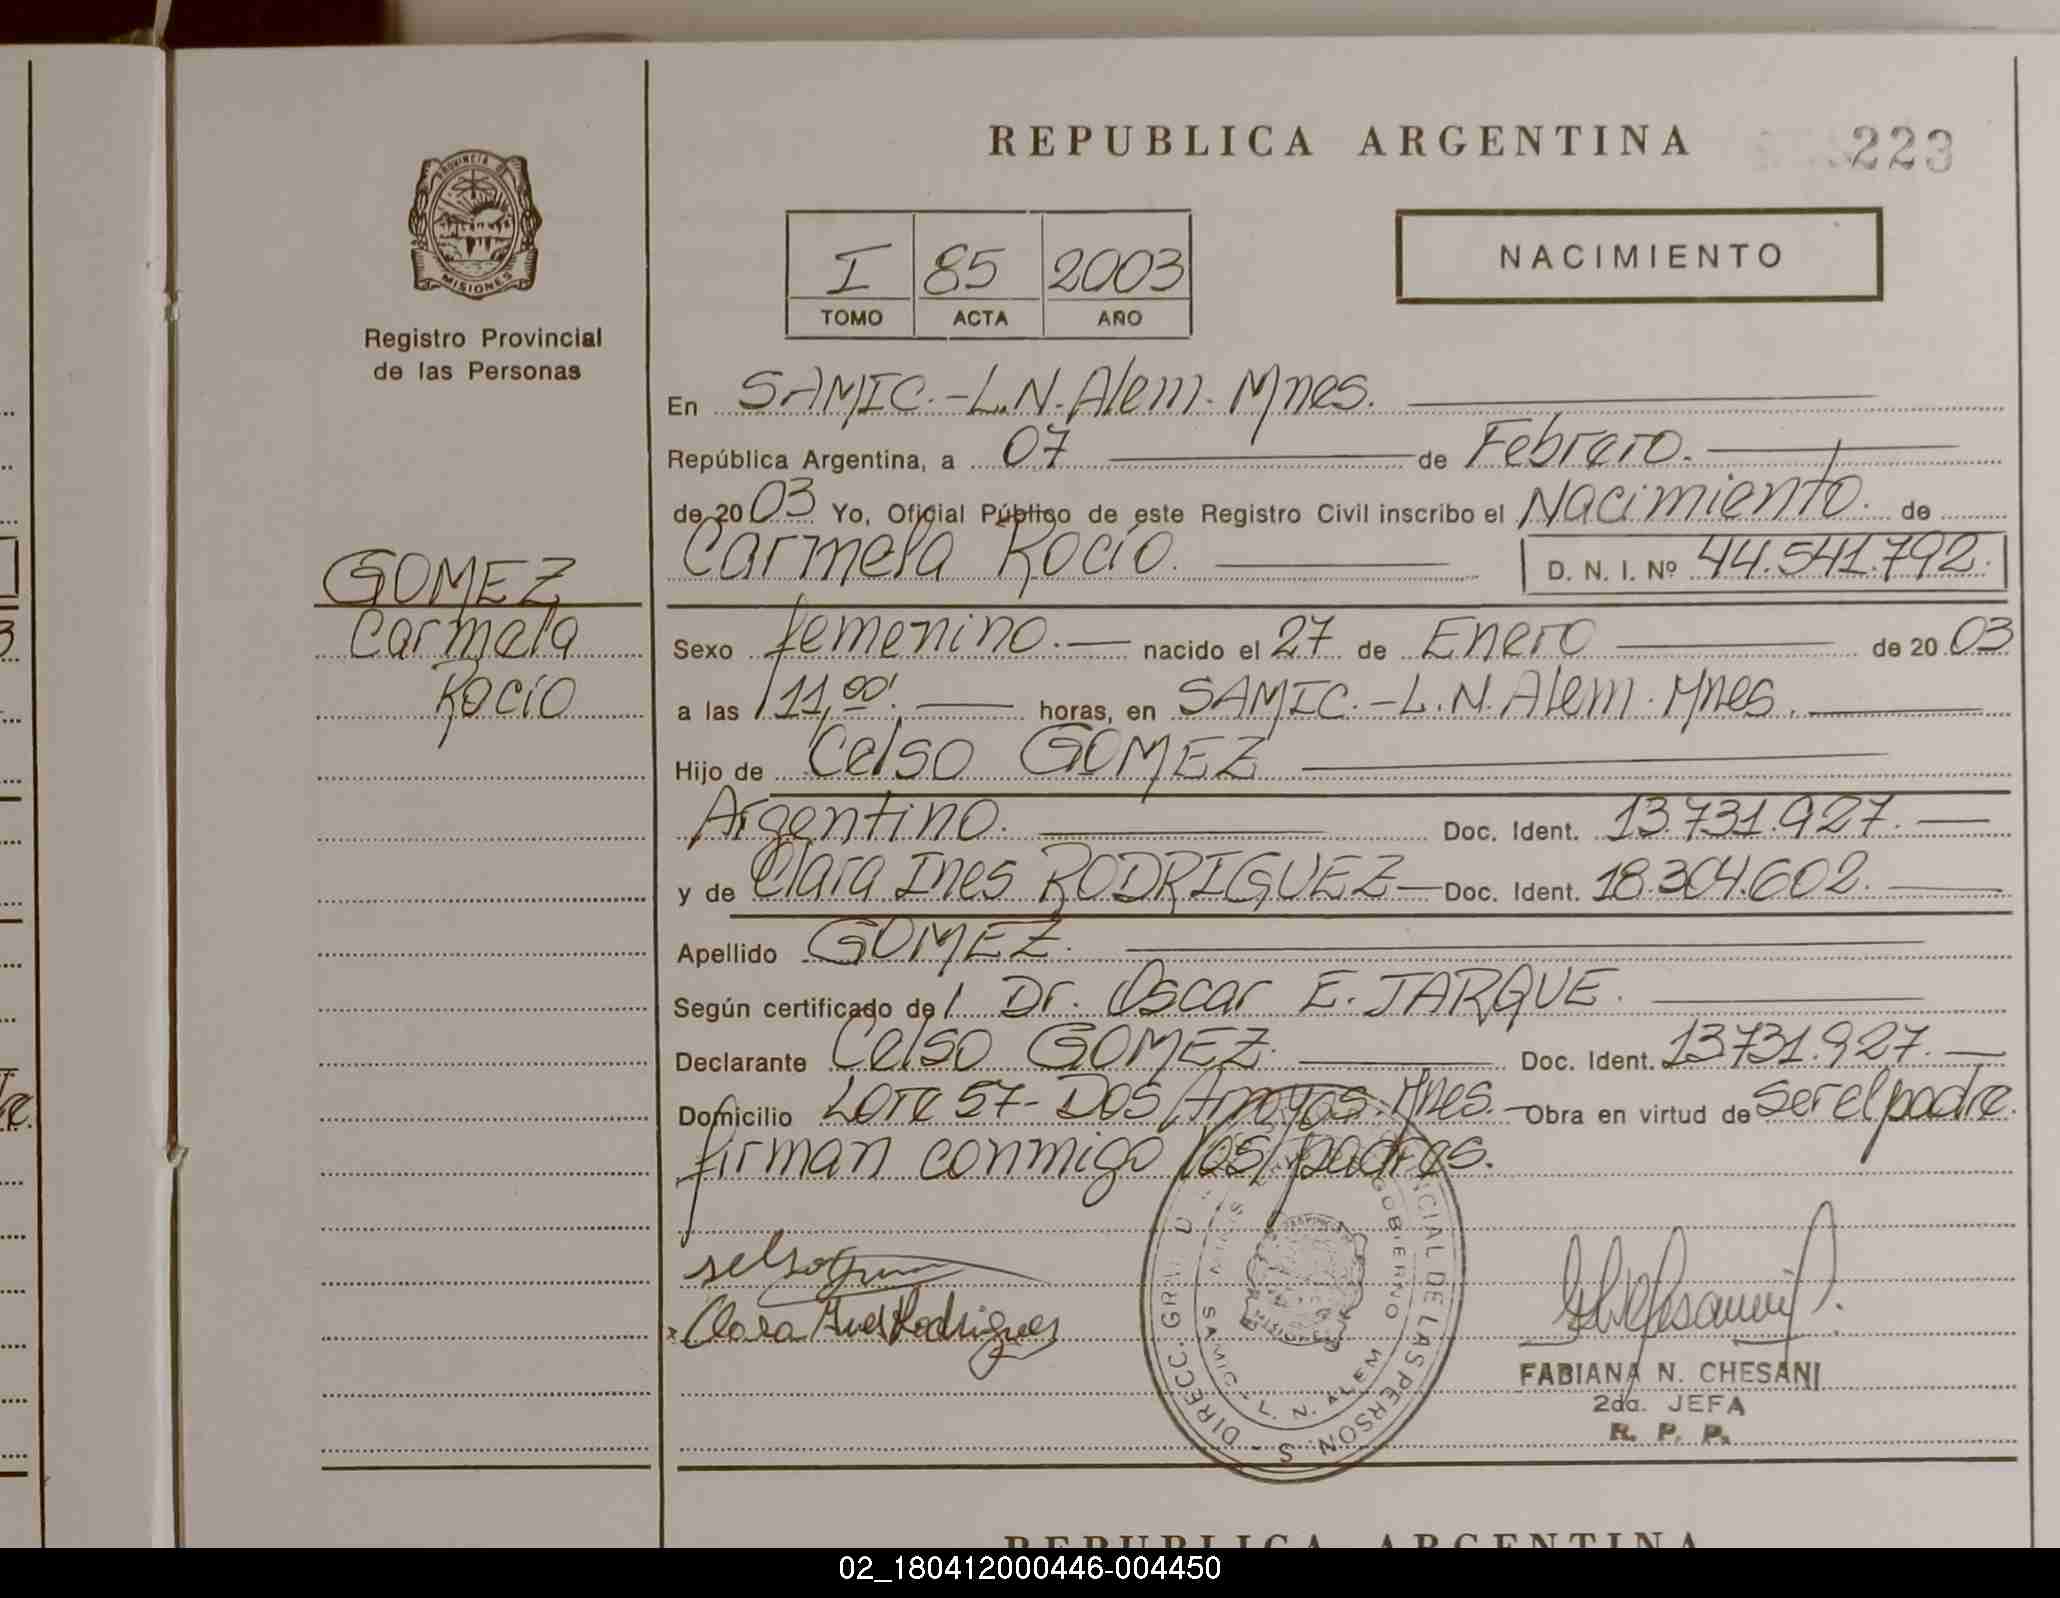 REPUBLICA ARGENTINA
223
PROVINCIA DE
MISIONES
Registro Provincial
de las Personas
I 85 2003
TOMO ACTA AÑO
NACIMIENTO
En SAMIC.-L.N.Alem. Mnes.
República Argentina, a 07 de Febrero.
de 2003 Yo, Oficial Público de este Registro Civil inscribo el Nacimiento. de
Carmela Rocío. D. N. I. Nº 44.541.792.
GOMEZ
Carmela
Rocío
Sexo femenino. nacido el 27 de Enero de 2003
a las 11,00'. horas, en SAMIC.-L.N.Alem. Mnes.
Hijo de Celso GOMEZ
Argentino. Doc. Ident. 13.731.927.
y de Clara Ines RODRIGUEZ Doc. Ident. 18.304.602.
Apellido GOMEZ.
Según certificado de Dr. Oscar E. JARQUE.
Declarante Celso GOMEZ. Doc. Ident. 13.731.927.
Domicilio Lote 57- Dos Arroyos. Mnes. Obra en virtud de ser el padre.
firman conmigo los padres.
Clara Ines Rodriguez
DIRECC. GRAL. CIAL DE LAS PERSON S
GOBIERNO
SAMIC - L. N. ALEM
MISIONES
FABIANA N. CHESANI
2da. JEFA
R. P. P.
REPUBLICA ARGENTINA
02_180412000446-004450